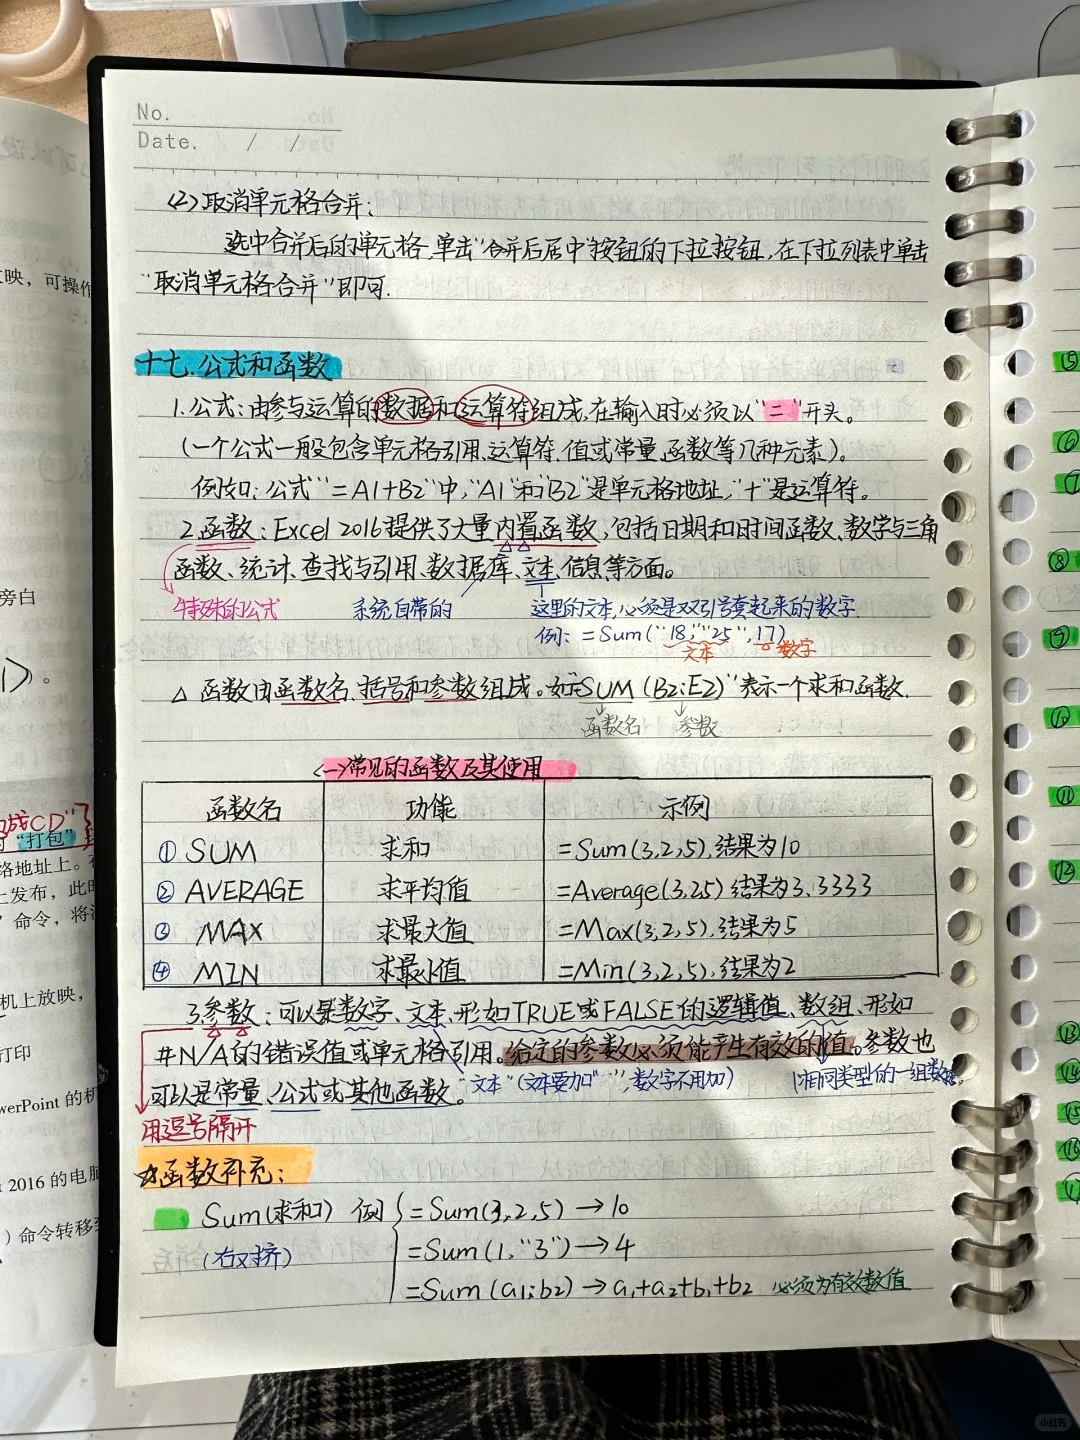 No.
Date. / /
(2)取消单元格合并:
选中合并后的单元格,单击"合并后居中"按钮的下拉按钮,在下拉列表中单击
"取消单元格合并"即可.
十七.公式和函数
1.公式:由参与运算的数据和运算符组成,在输入时必须以"="开头。
(一个公式一般包含单元格引用、运算符、值或常量、函数等几种元素)。
例如:公式"=A1+B2"中,"A1"和"B2"是单元格地址,"+"是运算符。
2.函数:Excel 2016提供了大量内置函数,包括日期和时间函数、数学与三角
函数、统计、查找与引用、数据库、文本、信息等方面。
特殊的公式 系统自带的 这里的文本,必须是双引号套起来的数字.
例: =Sum("18","25",17)
文本 数字
△ 函数由函数名、括号和参数组成。如"=SUM (B2:E2)"表示一个求和函数.
函数名 参数
<一>常见的函数及其使用
函数名 功能 示例
① SUM 求和 =Sum(3,2,5),结果为10
② AVERAGE 求平均值 =Average(3,2,5)结果为3.3333
③ MAX 求最大值 =Max(3,2,5),结果为5
④ MIN 求最小值 =Min(3,2,5),结果为2
3.参数:可以是数字、文本、形如TRUE或FALSE的逻辑值、数组、形如
#N/A的错误值或单元格引用。给定的参数必须能产生有效的值。参数也
可以是常量、公式或其他函数。 "文本"(文本要加" ",数字不用加) 相同类型的一组数据.
用逗号隔开
☆函数补充:
Sum(求和) 例 =Sum(3,2,5)→10
(右对挤) =Sum(1,"3")→4
=Sum(a1:b2)→a1+a2+b1+b2 必须为有效数值
映,可操作
旁白
)。
成CD"
"打包"
络地址上。
上发布,此时
"命令,将
机上放映,
打印
werPoint 的
t 2016 的电脑
)命令转移
⑤
⑥
⑦
⑧
⑨
⑩
⑪
⑫
⑬
⑭
⑮
⑯
小红书